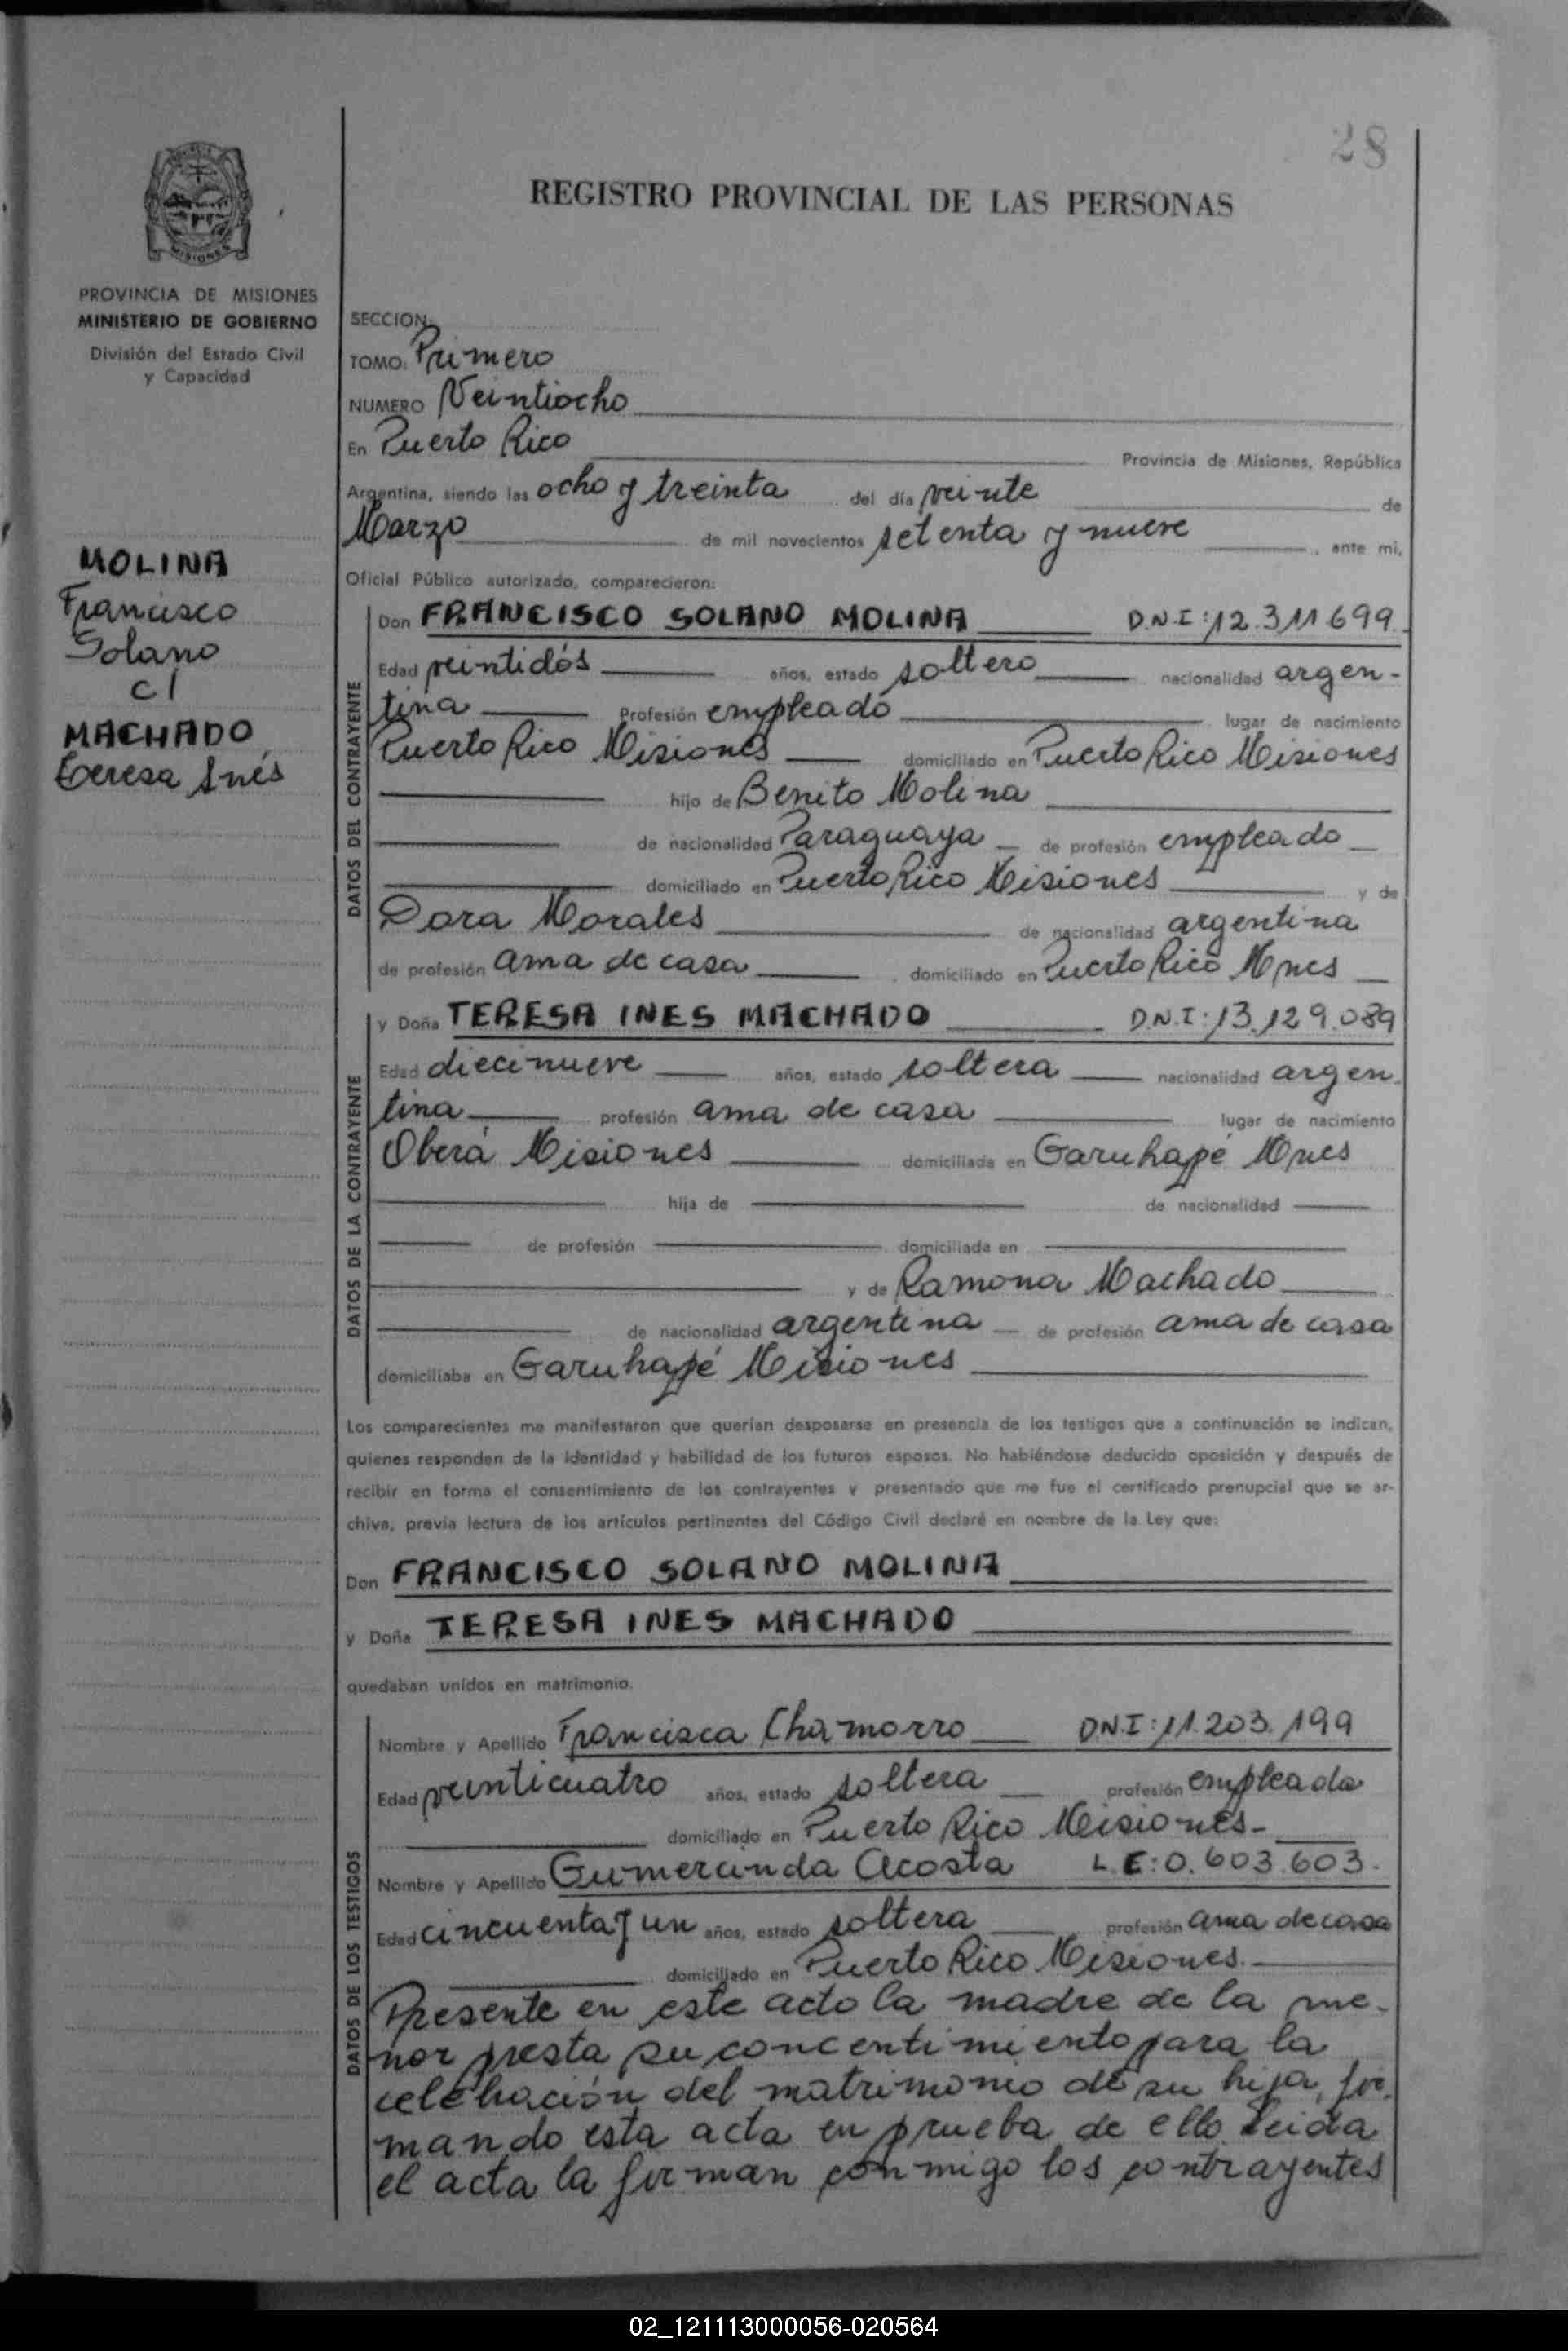 28
REGISTRO PROVINCIAL DE LAS PERSONAS
MISIONES
PROVINCIA DE MISIONES
MINISTERIO DE GOBIERNO
División del Estado Civil
y Capacidad
MOLINA
Francisco
Solano
c/
MACHADO
Teresa Inés
SECCION:
TOMO: Primero
NUMERO Veintiocho
En Puerto Rico Provincia de Misiones, República
Argentina, siendo las ocho y treinta del día veinte de
Marzo de mil novecientos setenta y nueve, ante mi,
Oficial Público autorizado, comparecieron:
DATOS DEL CONTRAYENTE
Don FRANCISCO SOLANO MOLINA D.N.I:12.311.699.
Edad veintidós años, estado soltero nacionalidad argen-
tina Profesión empleado lugar de nacimiento
Puerto Rico Misiones domiciliado en Puerto Rico Misiones
hijo de Benito Molina
de nacionalidad Paraguaya de profesión empleado
domiciliado en Puerto Rico Misiones y de
Dora Morales de nacionalidad argentina
de profesión ama de casa, domiciliado en Puerto Rico Mnes
DATOS DE LA CONTRAYENTE
y Doña TERESA INES MACHADO D.N.I:13.129.089
Edad diecinueve años, estado soltera nacionalidad argen-
tina profesión ama de casa lugar de nacimiento
Oberá Misiones domiciliada en Garuhapé Mnes
hija de de nacionalidad
de profesión domiciliada en
y de Ramona Machado
de nacionalidad argentina de profesión ama de casa
domiciliaba en Garuhapé Misiones
Los comparecientes me manifestaron que querían desposarse en presencia de los testigos que a continuación se indican,
quienes responden de la identidad y habilidad de los futuros esposos. No habiéndose deducido oposición y después de
recibir en forma el consentimiento de los contrayentes y presentado que me fue el certificado prenupcial que se ar-
chiva, previa lectura de los artículos pertinentes del Código Civil declaré en nombre de la Ley que:
Don FRANCISCO SOLANO MOLINA
y Doña TERESA INES MACHADO
quedaban unidos en matrimonio.
DATOS DE LOS TESTIGOS
Nombre y Apellido Francisca Chamorro D.N.I:11.203.199
Edad veinticuatro años, estado soltera profesión empleada
domiciliado en Puerto Rico Misiones-
Nombre y Apellido Gumercinda Acosta L.E:0.603.603.
Edad cincuenta y un años, estado soltera profesión ama de casa
domiciliado en Puerto Rico Misiones.
Presente en este acto la madre de la me-
nor presta su concentimiento para la
celebración del matrimonio de su hija, fir-
mando esta acta en prueba de ello. Leida
el acta la firman conmigo los contrayentes
02_121113000056-020564